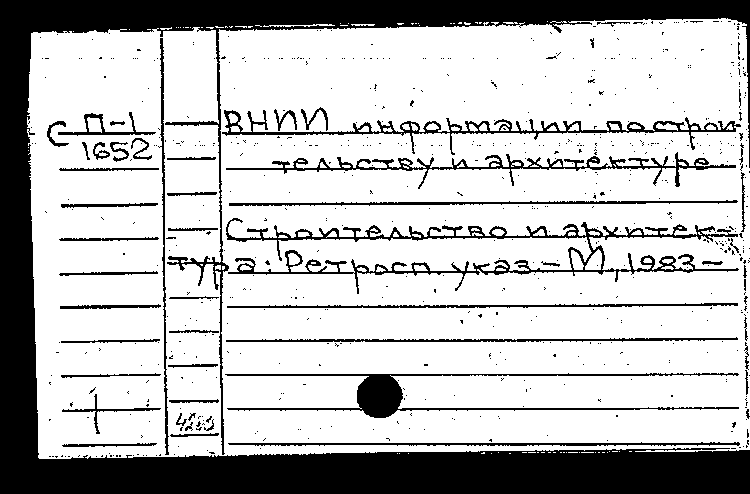 С П-1
1652
ВНИИ информации по строи-
тельству и архитектуре
Строительство и архитек-
тура: Ретросп. указ. – М., 1983 –